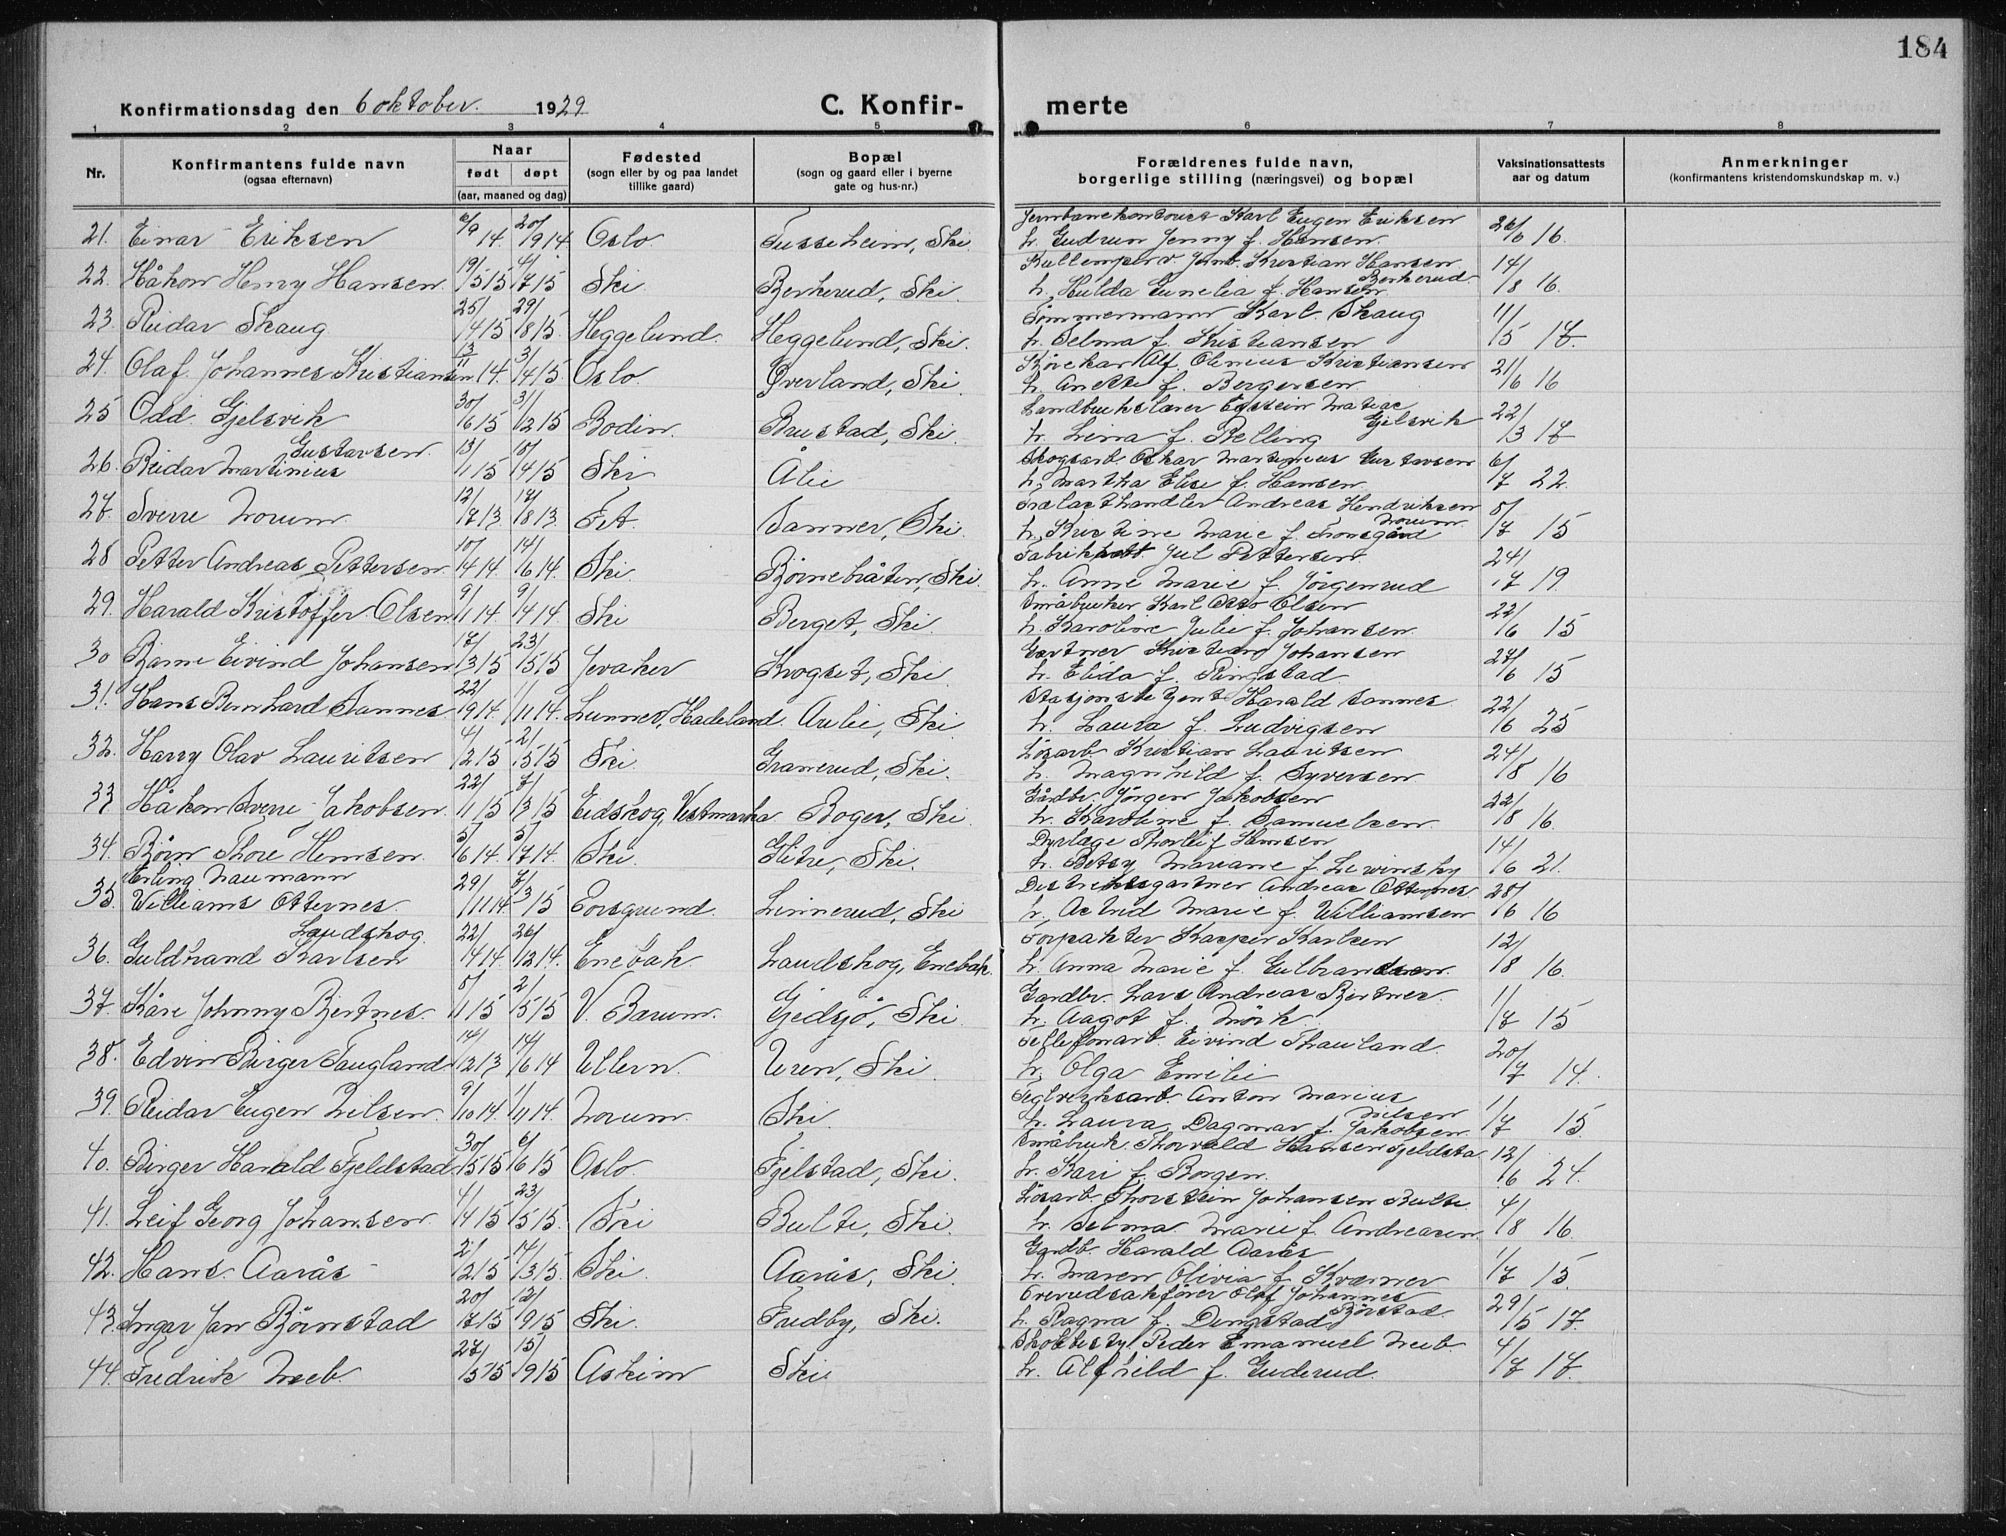 184
Konfirmationsdag den 6 oktober 1929 C. Konfir- merte
1 2 3 4 5 6 7 8
Nr. Konfirmantens fulde navn (ogsaa efternavn) Naar født døpt (aar, maaned og dag) Fødested (sogn eller by og paa landet tillike gaard) Bopæl (sogn og gaard eller i byerne gate og hus-nr.) Forældrenes fulde navn, borgerlige stilling (næringsvei) og bopæl Vaksinationsattests aar og datum Anmerkninger (konfirmantens kristendomskundskap m. v.)
21. Einar Eriksen 6/9 14. 20/9 14 Oslo. Tusseheim, Ski Jernbanekontorist Karl Eugen Eriksen
h. Gudrun Jenny f. Hansen. 26/6 16.
22. Håkon Henry Hansen 19/5 15 4/7 15 Ski. Berherud, Ski. Jernb. Kristian Hansen Berherud
h. Hulda f. Hansen. 14/8 16.
23. Reidar Skaug 25/4 15 29/8 15. Heggelund. Heggelund, Ski. Tømmermann Karl Skaug
h. Selma f. Kristiansen 11/5 17.
24. Olaf Johannes Kristiansen 13/11 14. 3/4 15. Oslo. Øverland, Ski Alf Olenius Kristiansen
h. Anette f. Bergersen 21/6 16
25 Odd Gjelsvik 30/6 15 31/12 15 Bodin. Brustad, Ski. Landbrukslærer Matias Gjelsvik
h. Lina f. Relling 22/3 17
26. Reidar Martinius Gustavsen. 13/1 15 18/4 15 Ski Ålie Skogsarb. Oskar Martinius Gustavsen
h. Martha Elise f. Hansen. 6/7 22.
27. Sverre Norum 12/7 13 17/8 13 Fet. Sanner, Ski. Trælasthandler Andreas Hendriksen Norum
h. Kristine Marie f. 8/7 15
28 Petter Andreas Pettersen 10/4 14. 14/6 14. Ski. Børnebråten, Ski. Jul Pettersen
h. Anne Marie f. Jørgenrud 24/7 19.
29. Harald Kristoffer Olsen 9/1 14 9/4 14. Ski Berget, Ski. Småbruker Karl Otto Olsen
h. Karoline Julie f. Johansen. 22/6 15
30 Bjarne Eivind Johansen 17/3 15 23/5 15 Jevaker Krogset, Ski Gartner Kristian Johansen
h. Elida f. Ringstad 27/6 15
31. Hans Bernhard Sannes 22/9 14. 1/11 14. Lunner, Hadeland. Aulie, Ski Stasjonsbetjent Harald Sannes
h. Laura f. Ludvigsen 22/6 25
32. Harry Olav Lauritsen 4/2 15 2/5 15 Ski. Granerud, Ski. Løsarb. Kristian Lauritsen
h. Magnhild f. Syversen 24/8 16
33 Håkon Sverre Jakobsen 22/1 15 7/3 15 Eidskog, Vestmarka Boger, Ski. Gårdbr. Jørgen Jakobsen
h. Karoline f. Samuelsen. 22/8 16.
34. Bjørn Thore Hemsen. 5/6 14. 5/7 14. Ski. Glitre, Ski. Dyrlæge Thorleif Hemsen
h. Betsy Mariane f. Lewinsky 14/6 21.
35. Erling Naumann Williams Otternes. 29/11 14 7/3 15 Porsgrund. Linnerud, Ski Distriktsgartner Andreas Otternes
h. Astrid Marie f. Williamsen 28/6 16
36. Guldbrand Karlsen Laudskog. 22/4 14. 26/12 14. Enebak Laudskog, Enebak. Forpakter Kasper Karlsen
h. Anna Marie f. Gulbrandsen. 12/8 16.
37. Kåre Johnny Bjertnes. 8/1 15 2/5 15 V. Bærum. Gjedsjø, Ski. Gardbr. Lars Andreas Bjertnes.
h. Aagot f. Mörk 1/7 15
38. Edvin Birger Taugland 14/12 13 14/6 14 Ullern. Uren, Ski. Tellefonarb. Eivind Thauland.
h. Olga Emilie 20/7 14.
39. Reidar Eugen Nilsen. 9/10 14. 1/11 14. Norum. Ski. Teglverksarb. Anton Marius Nilsen
h. Laura Dagmar f. Jakobsen 1/7 15.
40. Birger Harald Fjeldstad 30/5 15 6/6 15 Oslo Fjelstad, Ski. Småbruk. Thorvald Hansen Fjeldsta
h. Kari f. Borgen. 12/6 24.
41. Leif Georg Johansen. 4/4 15 23/5 15. Ski Bulte, Ski. Løsarb. Thorstein Johansen Bulte
h. Selma Marie f. Andreasen 4/8 16.
42. Hans Aarås 2/2 15 14/3 15. Ski. Aarås, Ski. Gardb. Harald Aarås
h. Maren Olivia f. Kværner 1/7 15
43. Ingar Jan Bjørnstad 20/7 15 12/9 15 Ski. Fredby, Ski. Olaf Johannes
h. Ragna f. Dingstad 29/5 17.
44. Fredrik Neeb. 27/5 15 15/9 15 Askim Ski Peder Emanuel Neeb.
h. Alfhild f. Guderud. 4/7 17.